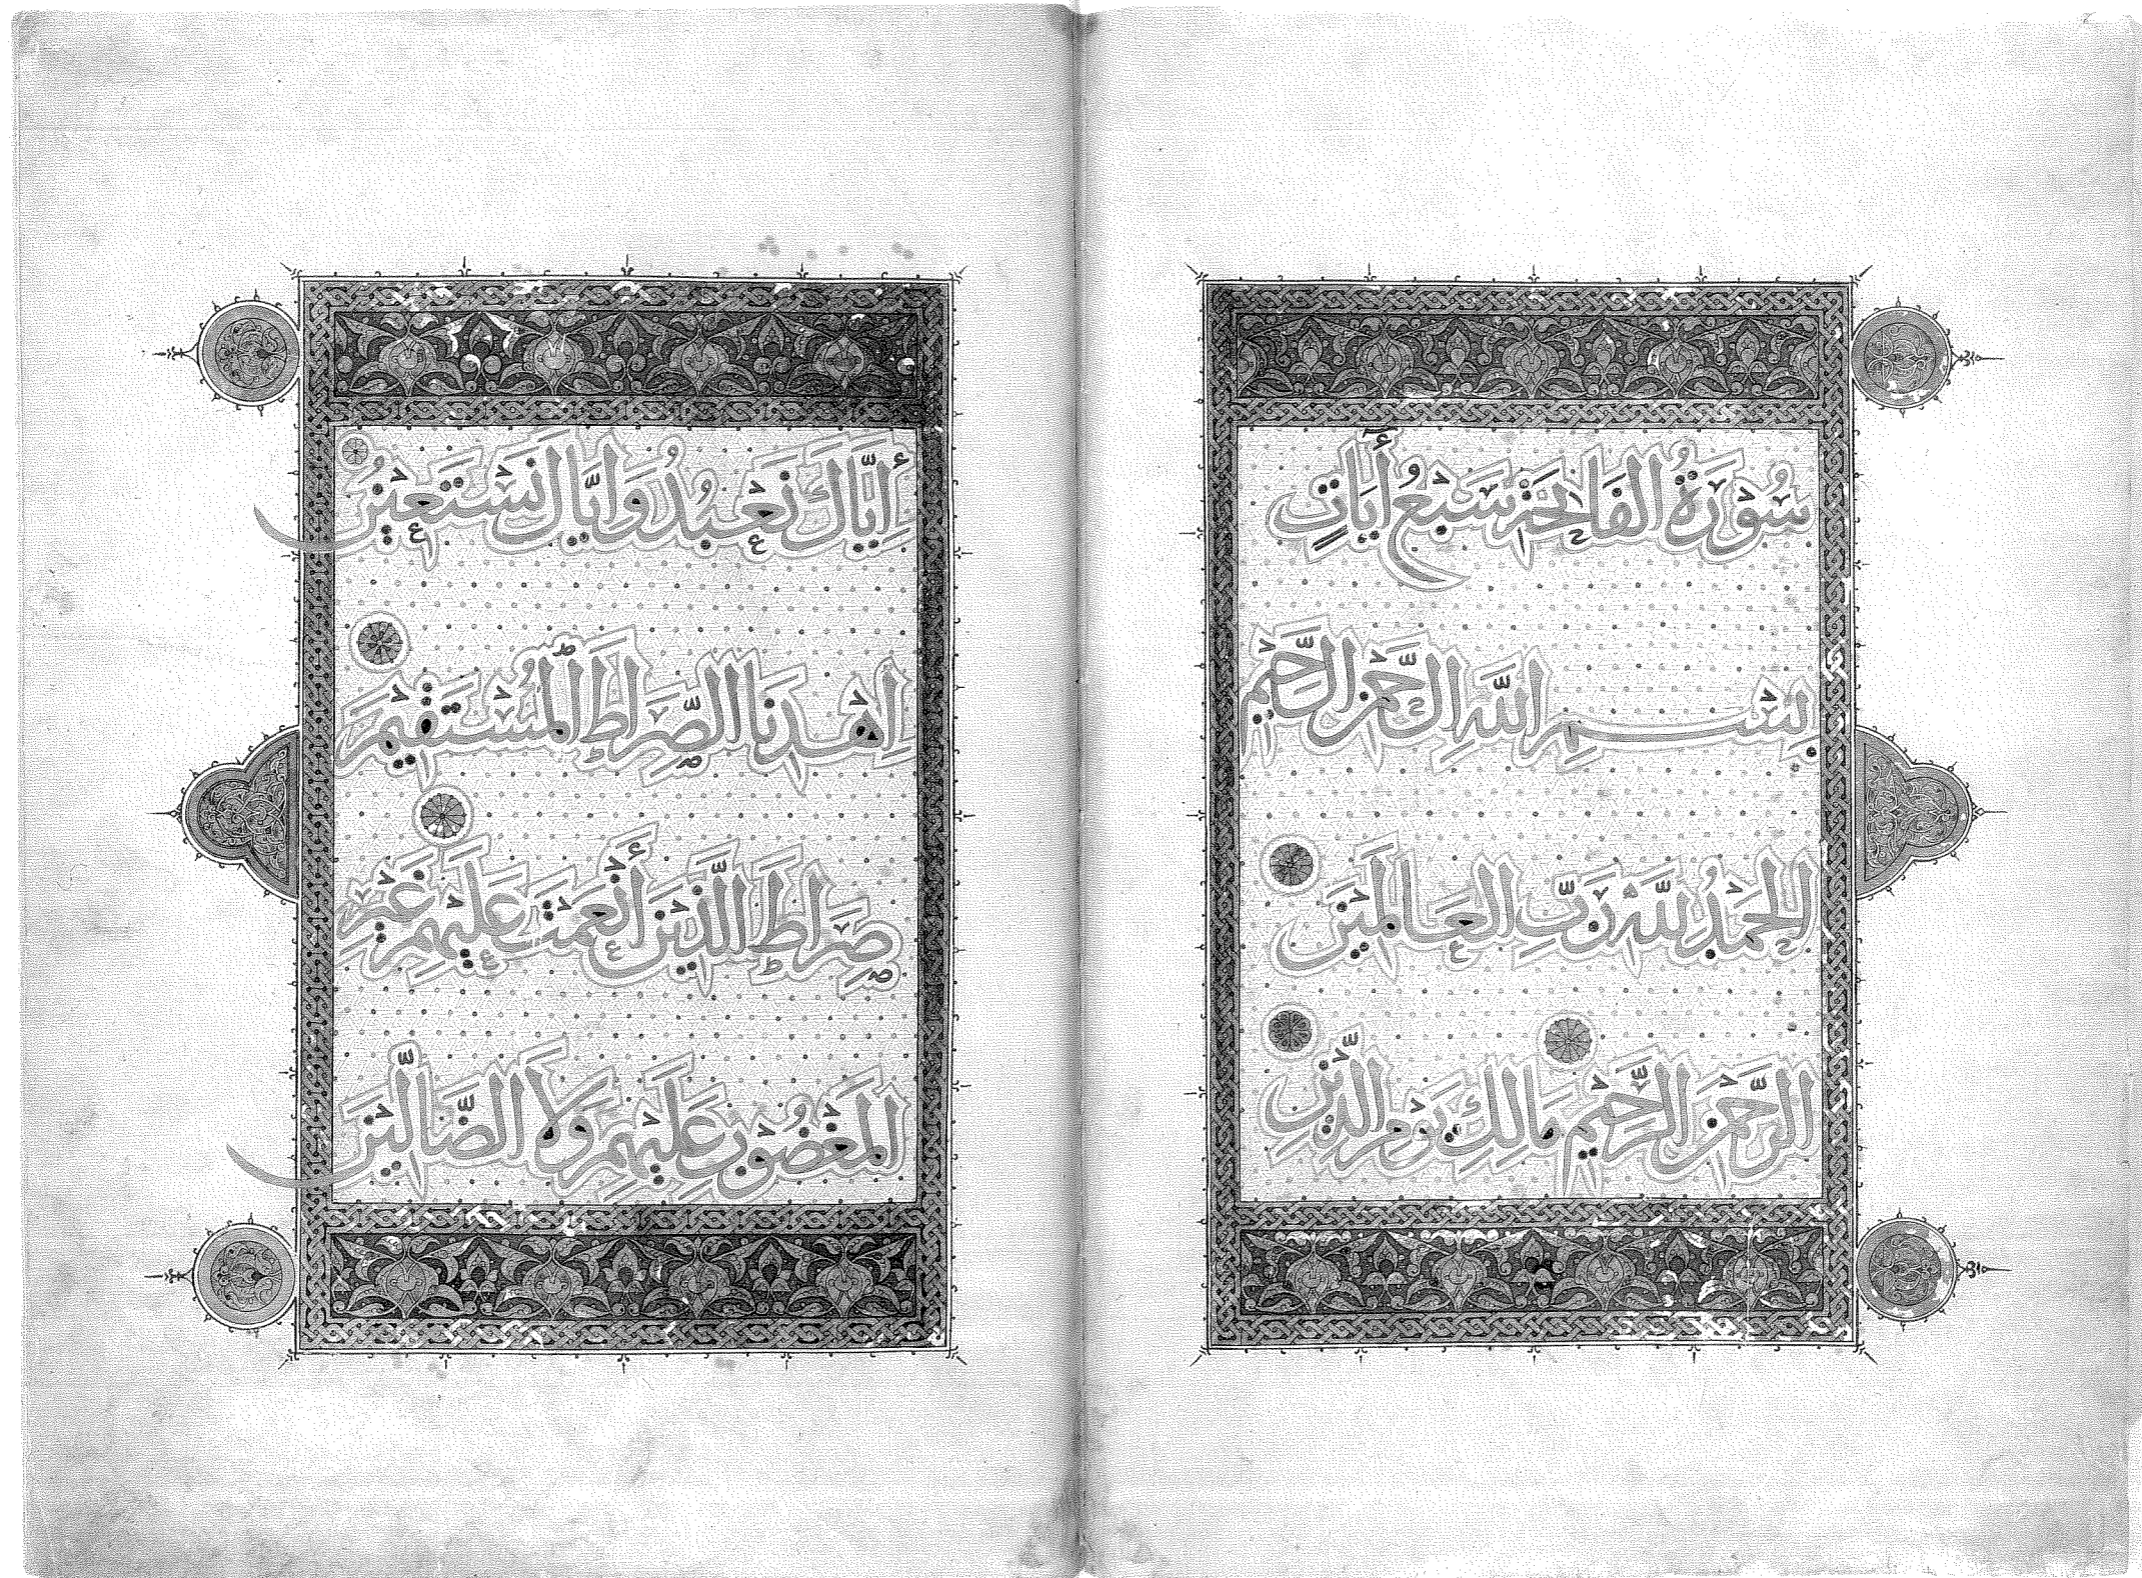 سُوْرَةُ الْفَاتِحَةِ سَبْعُ أٓيَاتٍ
بِسْمِ اللَّهِ الرَّحْمٰنِ الرَّحِيْمِ
الْحَمْدُ لِلَّهِ رَبِّ الْعَالَمِيْنَ
الرَّحْمٰنِ الرَّحِيْمِ مَالِكِ يَوْمِ الدِّيْنِ
إِيَّاكَ نَعْبُدُ وَإِيَّاكَ نَسْتَعِيْنُ
اِهْدِنَا الصِّرَاطَ الْمُسْتَقِيْمَ
صِرَاطَ الَّذِيْنَ أَنْعَمْتَ عَلَيْهِمْ غَيْرِ
الْمَغْضُوْبِ عَلَيْهِمْ وَلَا الضَّالِّيْنَ